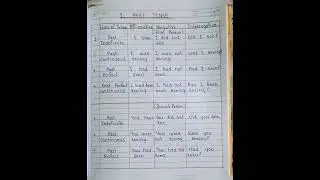 2. PAST TENSE
Name of Tense Affirmative Negative Interrogative
(First Person)
1. Past Indefinite I saw I did not see Did I see
2. Past continuous I was seeing I was not seeing was I seeing?
3. Past Perfect I had seen I had not seen Had I seen?
4. Past Perfect continuous I had been seeing I had not been seeing Had I been seeing?
(Second Person)
1. Past Indefinite You saw You did not see Did you see
2. Past Continuous You were seeing You were not seeing Were you seeing?
3. Past Perfect You had seen You had not seen Had you seen?